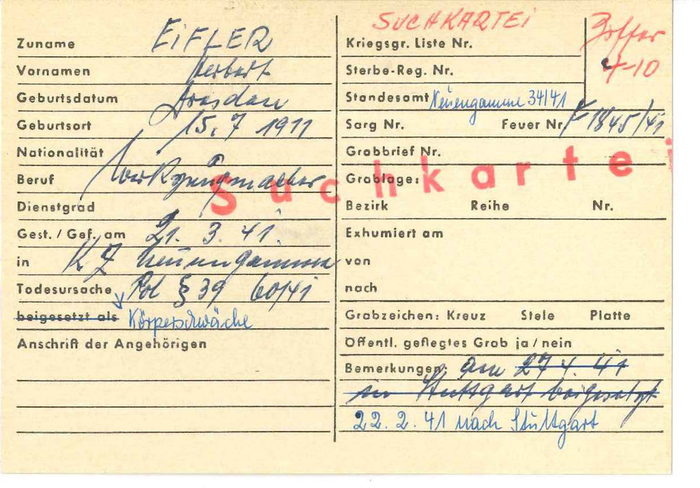 SUCHKARTEI
Zuname EIFLER
Vornamen Herbert
Geburtsdatum Dresden
Geburtsort 15. 7 1911
Nationalität
Beruf Werkzeugmacher
Dienstgrad
Gest. / Gef. am 21. 3. 41.
in KZ Neuengamme
Todesursache Pol § 39 60/41
beigesetzt als Körperschwäche
Anschrift der Angehörigen
Kriegsgr. Liste Nr.
Sterbe-Reg. Nr. 4-10
Standesamt Neuengamme 34/41
Sarg Nr. Feuer Nr. 1845/41
Grabbrief Nr.
Grablage:
Suchkartei
Bezirk Reihe Nr.
Exhumiert am
von
nach
Grabzeichen: Kreuz Stele Platte
Öffentl. gepflegtes Grab ja / nein
Bemerkungen: am 27 4. 41
in Stuttgart beigesetzt
22. 2. 41 nach Stuttgart